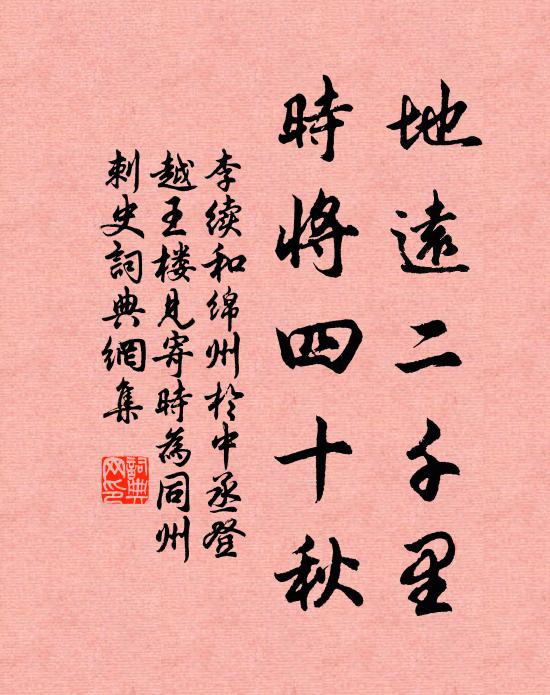 地遠二千里
時將四十秋
李续和绵州於中丞登
越王楼見寄時為同州
刺史詞典網集
詞典
网印